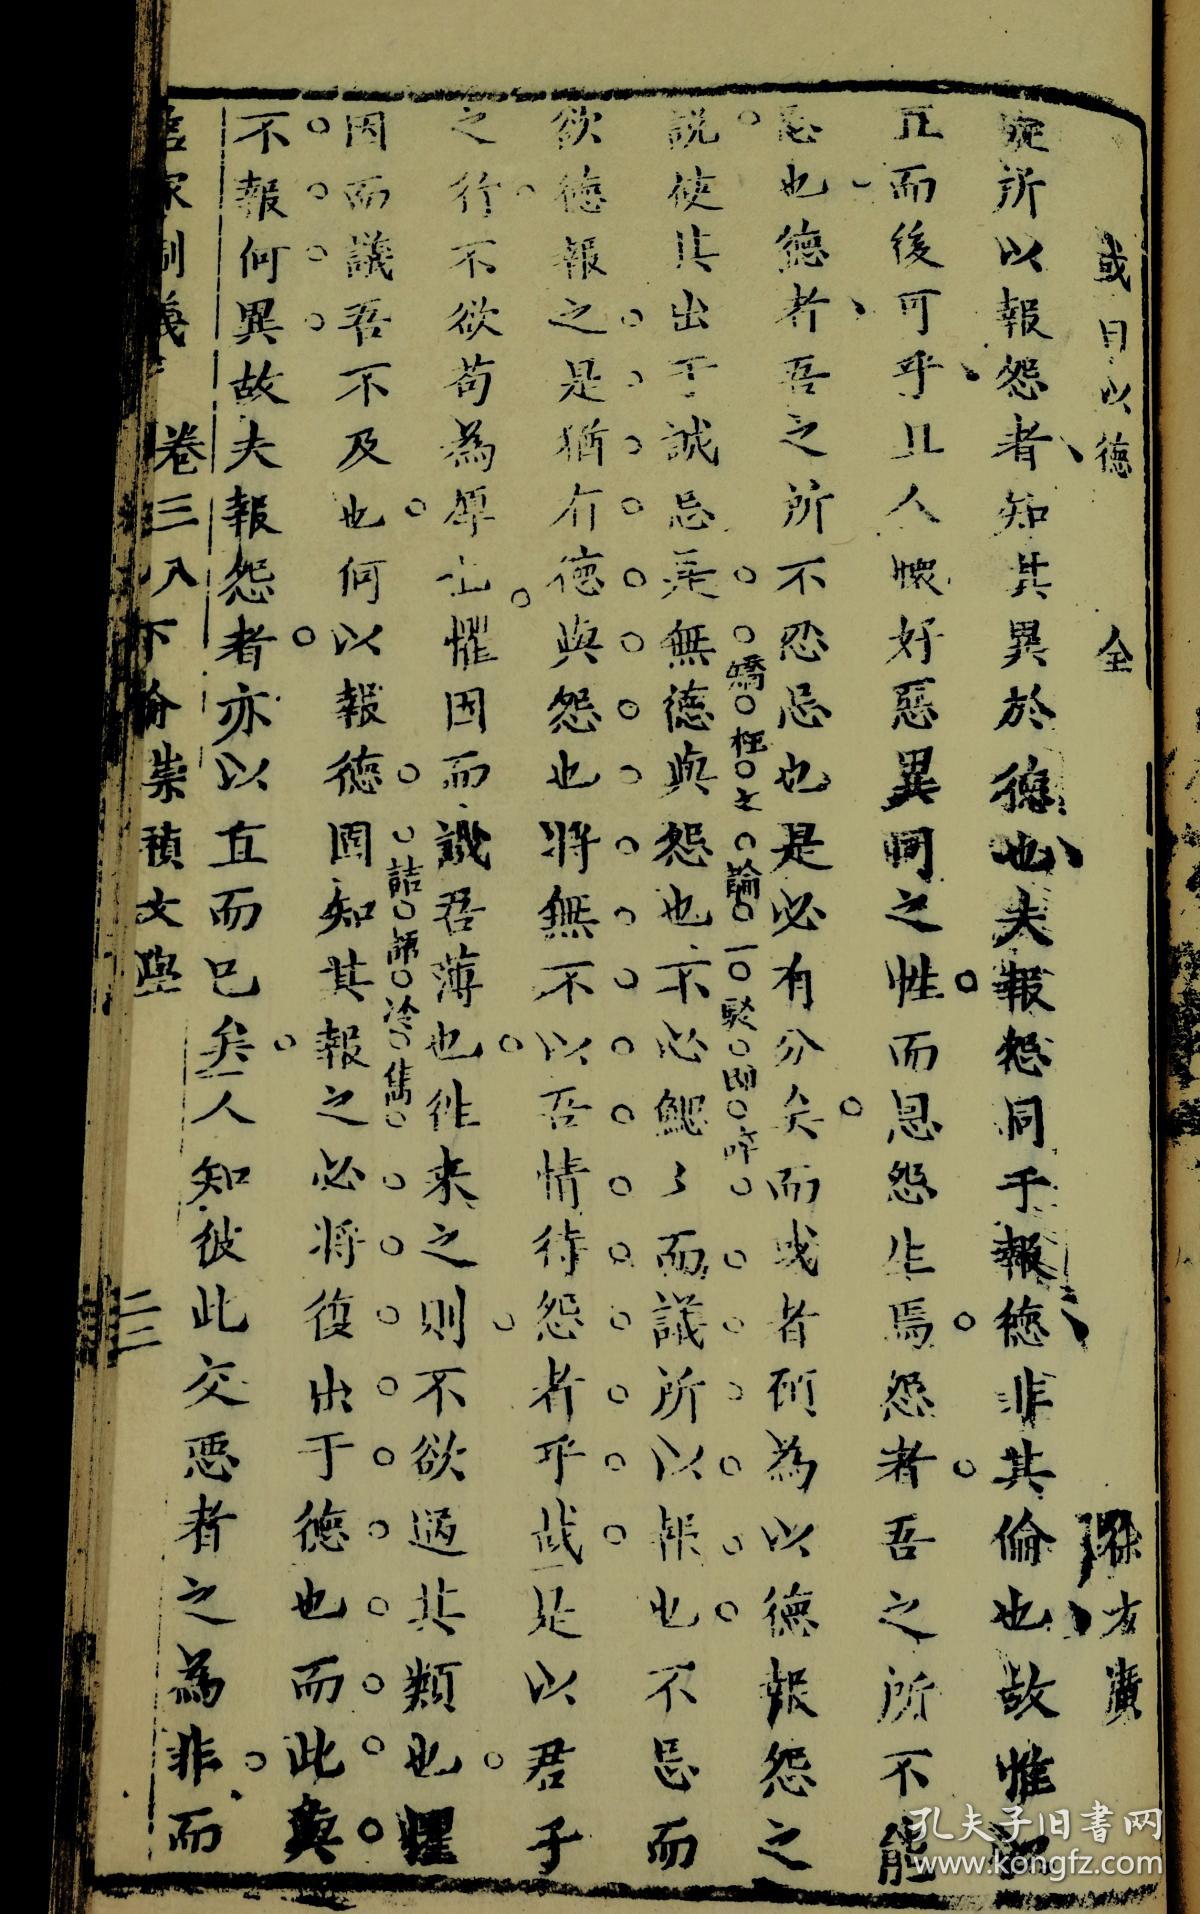 或曰以德 全 徐方廣
定所以報怨者知其異於德也夫報怨同于報德非其倫也故惟
正而後可乎且人懷好惡異同之性而恩怨生焉怨者吾之所不能
忘也德者吾之所不忍忘也是必有分矣而或者何為以德報怨之
說使其出于誠忘是無德與怨也不必鰓々而議所以報也不忘而
矯枉之論一駁即碎
欲德報之是猶有德與怨也將無不以吾情待怨者乎哉是以君子
之行不欲苟為厚也懼因而譏吾薄也徃来之則不欲過其類也懼
詰師冷雋
因而議吾不及也何以報德固知其報之必將復出于德也而此與
不報何異故夫報怨者亦以直而已矣人知彼此交惡者之為非而
家制義 卷三八下論 崇積文學 二三
孔夫子旧書网
www.kongfz.com